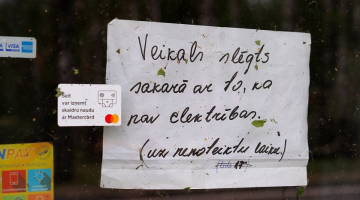 VISA
Šeit
var izņemt
skaidru naudu
ar Mastercard
Veikals slēgts
sakarā ar to, ka
nav elektrības.
(uz nenoteiktu laiku)